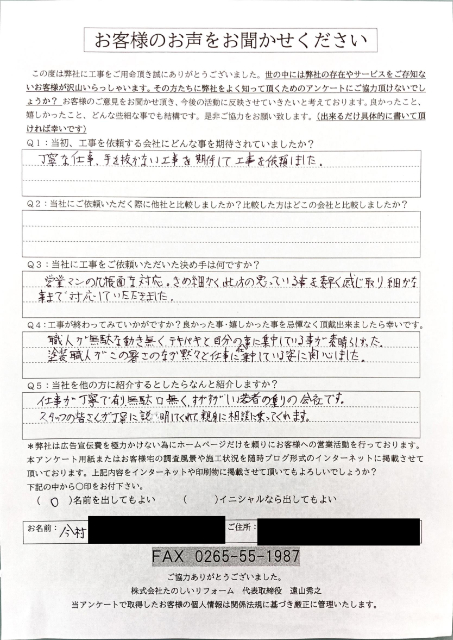 お客様のお声をお聞かせください
この度は弊社に工事をご用命頂き誠にありがとうございました。世の中には弊社の存在やサービスをご存知な
いお客様が沢山いらっしゃいます。その方たちに弊社をよく知って頂くためのアンケートにご協力頂けないでし
ょうか？お客様のご意見をお聞かせ頂き、今後の活動に反映させていきたいと考えております。良かったこと、
嬉しかったこと、どんな些細な事でも結構です。是非ご協力をお願い致します。（出来るだけ具体的に書いて頂
ければ幸いです）
Ｑ１：当初、工事を依頼する会社にどんな事を期待されていましたか？
丁寧な仕事、手を抜かない工事を期待して工事を依頼しました。
Ｑ２：当社にご依頼いただく際に他社と比較しましたか？比較した方はどこの会社と比較しましたか？
Ｑ３：当社に工事をご依頼いただいた決め手は何ですか？
営業マンの几帳面な対応。きめ細かく此方の思っている事を素早く感じ取り細かな
事まで対応していただきました。
Ｑ４：工事が終わってみていかがですか？良かった事・嬉しかった事を忌憚なく頂戴出来ましたら幸いです。
職人が無駄な動き無く、テキパキと自分の事に集中している事が素晴らしかった。
塗装職人がこの暑さのなか黙々と仕事に集中している姿に関心しました。
Ｑ５：当社を他の方に紹介するとしたらなんと紹介しますか？
仕事が丁寧で有り無駄口無く、
の会社です。
スタッフの皆さんが丁寧に説明してくれて親身に相談に乗ってくれます。
＊弊社は広告宣伝費を極力かけない為にホームページだけを頼りにお客様への営業活動を行っております。
本アンケート用紙またはお客様宅の調査風景や施工状況を随時ブログ形式のインターネットに掲載させて
頂いております。上記内容をインターネットや印刷物に掲載させて頂いてもよろしいでしょうか？
下記の中から〇印をお付下さい。
（ ０ ）名前を出してもよい （ ）イニシャルなら出してもよい
お名前： 今村 ご住所：
FAX 0265-55-1987
ご協力ありがとうございました。
株式会社たのしいリフォーム 代表取締役 遠山秀之
当アンケートで取得したお客様の個人情報は関係法規に基づき厳正に管理いたします。